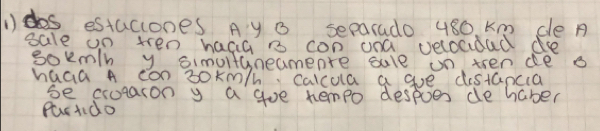 1) dos estaciones A y B separado 480 km de A
sale un tren hacia B con una velocidad de
50 km/h y simultaneamente sale un tren de B
hacia A con 30 km/h. calcula a que distancia
se cruzaron y a que tiempo despues de haber
partido